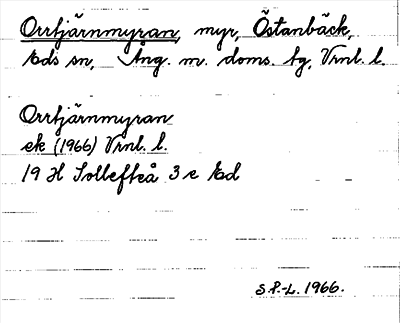 Orrtjärnmyran, myr, Östanbäck,
Eds sn, Ång. m. doms. tg, Vrnl. l.
Orrtjärnmyran
ek (1966) Vrnl. l.
19 H Sollefteå 3 e Ed
S.P.-L. 1966.